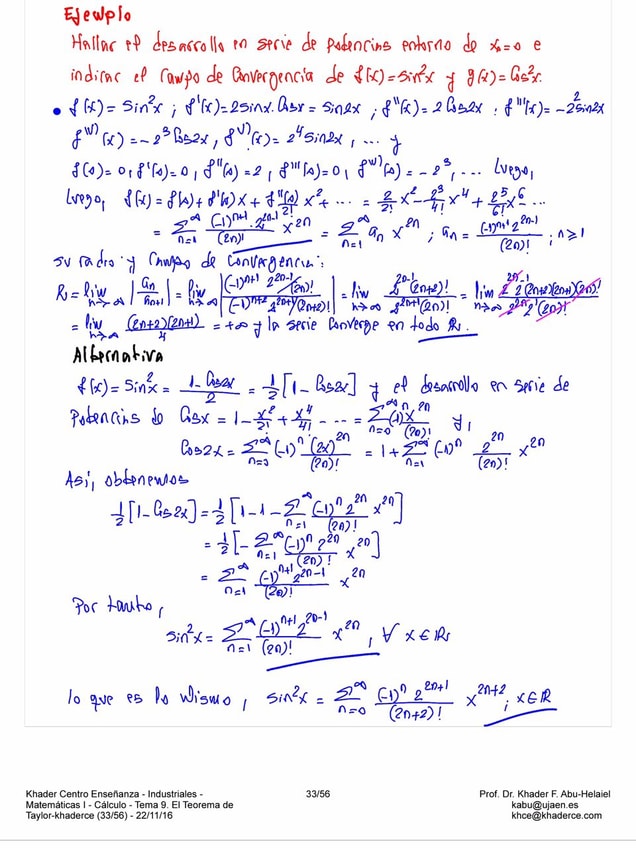 Ejemplo
Hallar el desarrollo en serie de potencias entorno de x₀=0 e
indicar el campo de convergencia de f(x)=sin²x y g(x)=cos²x.
• f(x)=sin²x ; f'(x)=2sinx.cosx=sin2x ; f''(x)=2cos2x ; f'''(x)=-2²sin2x
f^(IV)(x)=-2³cos2x, f^(V)(x)=2⁴sin2x, ... y
f(0)=0, f'(0)=0, f''(0)=2, f'''(0)=0, f^(IV)(0)=-2³, ... Luego,
Luego, f(x)=f(0)+f'(0)x+f''(0)/2! x²+...=2/2! x²-2³/4! x⁴+2⁵/6! x⁶-...
=∑_{n=1}^∞ (-1)^{n+1}.2^{2n-1}/(2n)! x^{2n} = ∑_{n=1}^∞ a_n x^{2n} ; a_n=(-1)^{n+1} 2^{2n-1}/(2n)! ; n≥1
su radio y campo de convergencia:
R=lim_{n→∞} |a_n/a_{n+1}|=lim_{n→∞} |(-1)^{n+1} 2^{2n-1}/(2n)! / (-1)^{n+2} 2^{2n+1}/(2n+2)!|=lim_{n→∞} 2^{2n-1}(2n+2)!/2^{2n+1}(2n)!=lim_{n→∞} 2^{2n-1}(2n+2)(2n+1)(2n)!/2^{2n}2^1(2n)!
=lim_{n→∞} (2n+2)(2n+1)/4=+∞ y la serie converge en todo R.
Alternativa
f(x)=sin²x=1-cos2x/2=1/2[1-cos2x] y el desarrollo en serie de
Potencias de cosx=1-x²/2!+x⁴/4!-...=∑_{n=0}^∞ (-1)^n x^{2n}/(2n)! y,
cos2x=∑_{n=0}^∞ (-1)^n (2x)^{2n}/(2n)! = 1+∑_{n=1}^∞ (-1)^n 2^{2n}/(2n)! x^{2n}
Así, obtenemos
1/2[1-cos2x]=1/2[1-1-∑_{n=1}^∞ (-1)^n 2^{2n}/(2n)! x^{2n}]
=1/2[-∑_{n=1}^∞ (-1)^n 2^{2n}/(2n)! x^{2n}]
=∑_{n=1}^∞ (-1)^{n+1} 2^{2n-1}/(2n)! x^{2n}
Por tanto,
sin²x=∑_{n=1}^∞ (-1)^{n+1} 2^{2n-1}/(2n)! x^{2n}, ∀ x∈R
lo que es lo mismo, sin²x=∑_{n=0}^∞ (-1)^n 2^{2n+1}/(2n+2)! x^{2n+2} ; x∈R
Khader Centro Enseñanza - Industriales -
Matemáticas I - Cálculo - Tema 9. El Teorema de
Taylor-khaderce (33/56) - 22/11/16
33/56
Prof. Dr. Khader F. Abu-Helaiel
kabu@ujaen.es
khce@khaderce.com